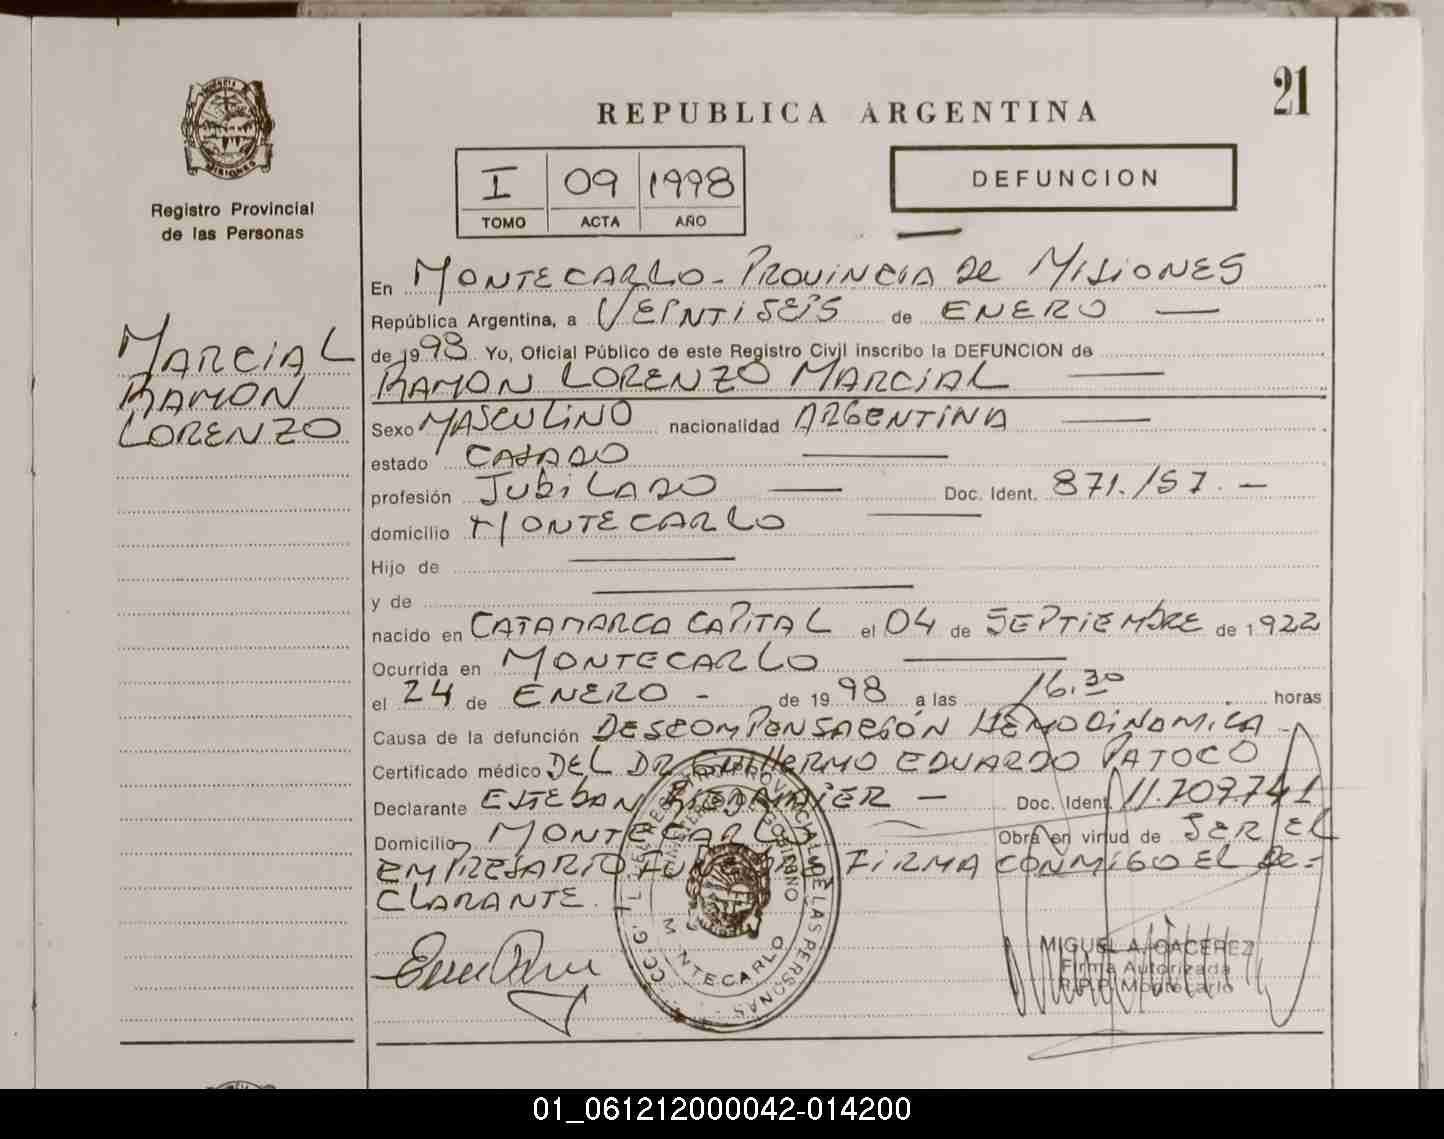 21
REPUBLICA ARGENTINA
I 09 1998
TOMO ACTA AÑO
DEFUNCION
PROVINCIA DE
MISIONES
Registro Provincial
de las Personas
MARCIAL
RAMON
LORENZO
En MONTECARLO - PROVINCIA DE MISIONES
República Argentina, a VEINTISEIS de ENERO
de 1998 Yo, Oficial Público de este Registro Civil inscribo la DEFUNCION de
RAMON LORENZO MARCIAL
Sexo MASCULINO nacionalidad ARGENTINA
estado CASADO
profesión JUBILADO Doc. Ident. 871./57.-
domicilio MONTECARLO
Hijo de
y de
nacido en CATAMARCA CAPITAL el 04 de SEPTIEMBRE de 1922
Ocurrida en MONTECARLO
el 24 de ENERO - de 1998 a las 16.30 horas
Causa de la defunción DESCOMPENSACIÓN HEMODINAMICA -
Certificado médico DEL DR GUILLERMO EDUARDO PATOCO
Declarante ESTEBAN - Doc. Ident. 11.707.741
Domicilio MONTECARLO Obra en virtud de SER EL
EMPRESARIO FUNEBRE FIRMA CONMIGO EL DE=
CLARANTE.
REGISTRO PROVINCIAL DE LAS PERSONAS
MINISTERIO DE GOBIERNO
MONTECARLO
MIGUEL A. CACEREZ
Firma Autorizada
R.P.P. Montecarlo
01_061212000042-014200